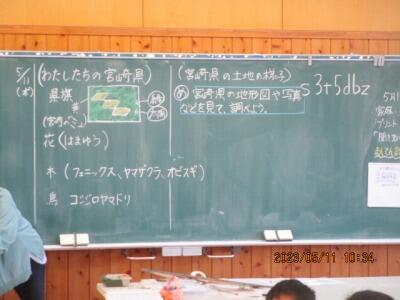 5/11
(木)
(わたしたちの宮崎県)
県旗
(宮崎の「こ」)
緑
太陽
花(はまゆう)
木(フェニックス、ヤマザクラ、オビスギ)
鳥 コシジロヤマドリ
(宮崎県の土地の様子)
め 宮崎県の地形図や写真
などを見て、調べよう。
s3+5dbz
5月1
プリント
2023/05/11 10:34